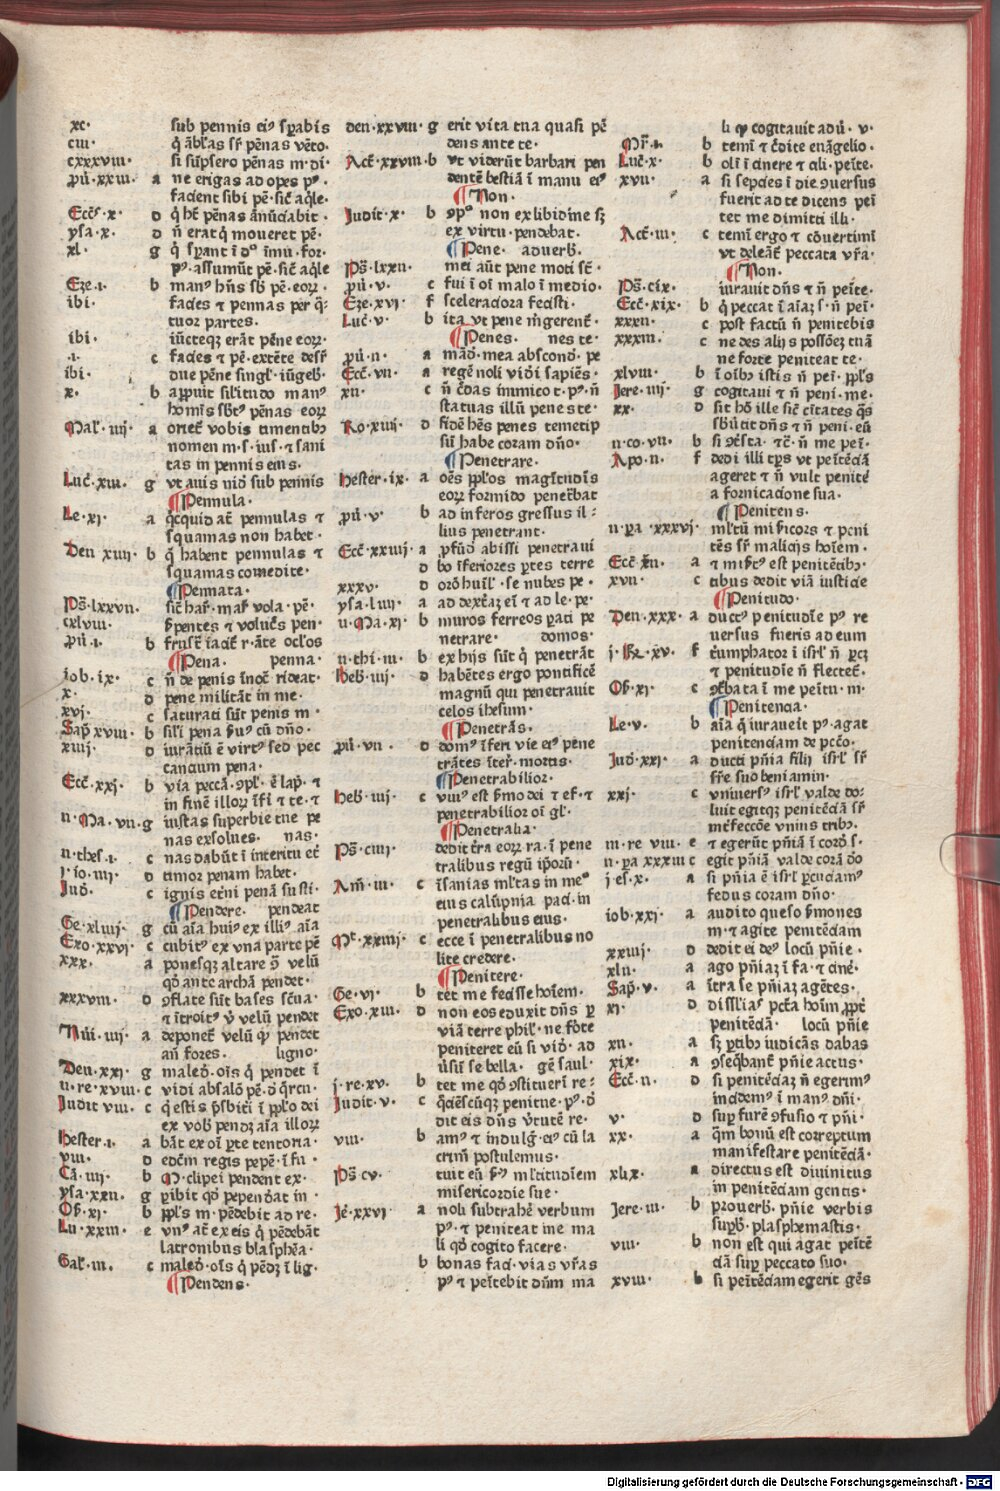 xc· sub pennis ei⁹ sꝑabis
ciii· q̇ ābl̄as sr̄ pēnas vēto·
cxxxviii· si sūpsero pēnas m·di·
ꝓū·xxiii· a ne erigas ad opes p⁹·
facient sibi pē·sic̄ aq̄le·
Eccl̄·x· d q̇ hēt pēnas ānūciabit·
ysa·x· d n̄ erat q̇ moueret pē·
xl· g
pˢ·assumūt pē·sic̄ aq̄le
Eze·i· b man⁹ hñis sb̄ pē·eoꝝ·
ibi· facies ⁊ pennas per q̄-
tuor partes·
ibi· iūcteqꝫ erāt pēne eoꝝ·
·i· c facies ⁊ pē·extēte desr̄
ibi· due pēne singl̄·iūgeb̄·
x· b appuit sil̄itudo man⁹
hoīs sbt⁹ pēnas eoꝝ
Mal̄·iiij· a oriet̄ vobis timentibꝫ
nomen m·s·ius·⁊ sani
tas in pennis eius·
Luc̄·xiii· g vt auis nid̄ sub pennis
¶Pennula·
Le·xi· a q̇cquid at̄ pennulas ⁊
squamas non habet·
Deu xiiij· b q̇ habent pennulas ⁊
squamas comedite·
¶Pennata·
Ps̄·lxxvii·
cxlviii·
ꝓū·i· b
¶Pena· penna·
iob·ix· c n̄ de penis inoc̄ rideat·
x· d pene militāt in me·
xvj· c saturati sūt penis m·
Sap̄ xviii· b sil̄i pena ẜu⁹ cū dn̄o·
xiiij d iurātiū ē virt⁹ sed pec
cancium pena·
Ecc̄·xxj· b
in finē illoꝝ īfi ⁊ te·⁊
ii·Ma·vii·g iustas superbie tue pe
nas exsolues· nas·
ii·thes·i· c nas dabūt ī interitu et̄
j·io·iiij· d timor penam habet·
Jud̄· c ignis et̄ni penā susti·
¶Pendere· pendeat
Ge·xliiij· g cū aīa hui⁹ ex illi⁹ aīa
Exo·xxvj· c cubit⁹ ex vna parte pē
xxx· a ponesqꝫ altare ꝯ̄ velū
qd̄ ante archā pendet·
xxxviii· d ꝯflate sūt bases sc̄ua·
⁊ ītroit⁹ ꝟ velū pendet
Nūi·iiij· a deponet̄ velū qd̄ pendet
añ fores· ligno·
Deu·xxi· g maled̄·oīs q̇ pendet ī
ii·re·xviii· c vidi absalō pē·d̄ q̄rcu·
Judit viii· c q̇ estis p̄sbiti ī pp̄lo dei
ex vob̄ pendꝫ aīa illoꝝ
hester·i· a bāt ex oī pte tentoria·
viii· d edc̄m regis pepē·ī fu·
Cā·iiij· b M·clipei pendent ex·
ysa·xxii· g
Ob̄·xi· b pp̄ls m·pēdebit ad re·
Lu·xxiii· e vn⁹ at̄ ex eis q̇ pēdebāt
latronibus blasphēa·
Gal̄·iii· c maled̄·oīs q̇ pēdꝫ ī lig·
¶Pendens·
deu·xxviii· g erit vita tua quasi pē
dens ante te·
Act̄·xxviii·b vt viderūt barbari pen
dentē bestiā ī manu ei⁹
¶Non·
Judit·x· b ꝯpᵃ non ex libidine sꝫ
ex virtu·pendebat·
¶Pene· aduerb̄·
Ps̄·lxxii· mei aūt pene moti sē·
ꝓū·v· c fui ī oī malo ī medio·
Eze·xvj f sceleratiora fecisti·
Luc̄·v· b ita vt pene mergerent̄·
¶Penes· nes te·
ꝓū·ii· a mād̄·mea abscond̄·pe
Ecc̄·vii· a regē noli vid̄i sapiēs·
xii· c n̄ c̄das inimico t·pˢ·n̄
statuas illū penes te·
Ro·xiiij· d fidē hēs penes temetip
sū habe coram dn̄o·
¶Penetrare·
hester·ix· a oēs pp̄los magitudis
eoꝝ formido penet̄bat
ꝓū·v· b ad inferos gressus il-
lius penetrant·
Ecc̄·xxiiij· a ꝓfūd̄ abissi penetraui
d bo īferiores ꝑtes terre
xxxv· d orō huīl̄·se nubes pe·
ysa·liiij· a ad dext̄aꝫ eī ⁊ ad le·pe·
ii·Ma·xi· b muros ferreos ꝑati pe
netrare· domos·
ii·thi·iii· b ex hijs sūt q̇ penetrāt
heb̄·iiij· d habētes ergo pontificē
magnū qui penetrauit
celos ihesum·
¶Penetrās·
ꝓū·vii· d dom⁹ īferi vie ei⁹ pene
trātes īter̄·mortis·
¶Penetrabilior·
heb̄·iiij· c viu⁹ est ẜmo dei ⁊ ef·⁊
penetrabilior oī gl̄·
¶Penetralia·
Ps̄·ciiij· dedit t̄ra eoꝝ ra·ī pene
tralibus regū ipoꝝ·
Am̄·iii· c
eius calūpnia paci·in
penetralibus eius·
Mt̄·xxiiij· c ecce ī penetralibus no
lite credere·
¶Penitere·
Ge·vj· b tet me fecisse hoīem·
Exo·xiii· d non eos eduxit dn̄s ꝑ
viā terre phil̄·ne fōte
peniteret eū si vid̄·ad
ūsū se bella· gē saul·
j·re·xv· b tet me qd̄ ꝯstituerī re:
Judit·v· c q̄ciēscūqꝫ penitue·pˢ·d̄
dit eis dn̄s v̄tutē re·
viii· b am⁹ ⁊ indulḡ·ei⁹ cū la
crim̄ postulemus·
Ps̄ cv· tuit eū ẜm ml̄titudīem
misericordie sue·
Je·xxvj a noli subtrahē verbum
pˢ·⁊ peniteat me ma
li qd̄ cogito facere·
b bonas faci·vias vr̄as
pˢ ⁊ penītebit dn̄m ma
li qd̄ cogitauit adū·v·
Mr̄·i· b temī ⁊ c̄dite euāgelio·
Luc̄·x· b olī ī cinere ⁊ cili·peīte·
xvii· a si sepcies ī die ꝯuersus
fuerit ad te dicens peī
tet me dimitti illi·
Act̄·iii· c temī ergo ⁊ cōuertimī
vt deleāt̄ peccata vr̄a·
¶Non·
Ps̄·cix· iurauit dn̄s ⁊ n̄ peīte·
Eccl̄·xix· b
xxxii· c post factū n̄ penitebis
xxxiii· c ne des alijs possōeꝫ tuā
ne forte peniteat te·
xlviii· b ī oībꝫ istis n̄ peī·pp̄ls
Jere·iiij g cogitaui ⁊ n̄ peni·me·
xx· d sit hō ille sic̄ citates q̇s
sbūtit dn̄s ⁊ n̄ peni·eū
ii·co·vii· b
Apo·ii· f dedi illi tp̄s vt peītēciā
ageret ⁊ n̄ vult penitē
a fornicacione sua·
¶Penitens·
ii·ꝑa·xxxvj· ml̄tū mi ẜicors ⁊ peni
tēs sr̄ malicijs hoīem·
Ecc̄·xii· a ⁊ misr̄t⁹ est penitētibꝫ·
xvii· c tibus dedit viā iusticie
¶Penitudo·
Deu·xxx· a duct⁹ penitudīe pˢ re
uersus fueris ad eum
j·Re·xv· f t̄umphatoꝝ ī isrl̄ n̄ ꝑcꝫ
⁊ penitudīe n̄ flectet̄·
Ob̄·xi· c ꝯt̄bata ī me peītu·m·
¶Penitencia·
Le·v· b aīa q̇ iurauerit pˢ·agat
penitenciam de pctō·
Jud̄·xxi· a ducti pn̄ia filij isrl̄ sr̄
fr̄e suo beniamin·
xxj· c vniuers⁹ isrl̄ valde do-
luit egitqꝫ penitēciā sr̄
int̄feccōe vnius tribꝫ·
iii·re viii· e ⁊ egerūt pn̄iā ī cord̄ s·
ii·ꝑa xxxiii c egit pn̄iā valde corā d̄o
j·es·x· a si pn̄ia ē isrl̄ ꝑcuciam⁹
fedus coram dn̄o·
iob·xxj· a audito queso ẜmones
m·⁊ agite penitēciam
xxiiij· d dedit ei de⁹ locū pn̄ie·
xlii· a ago pn̄iaꝫ ī fa·⁊ cinē·
Sap̄·v· a ītra se pn̄iaꝫ agētes·
xi· d dissil̄ias pctā hoīm ꝓpt̄
penitēciā· locū pn̄ie
xii· a sꝫ ꝑtibꝫ iudicās dabas
xix· a ꝯseqbant̄ pn̄ie actus·
Ecc̄·ii· d si penitēciaꝫ n̄ egerim⁹
incidem⁹ ī man⁹ dn̄i·
v· d suꝑ furē ꝯfusio ⁊ pn̄i·
xx· a q̄m bonū est correptum
manifestare penitēciā·
xlix· a directus est diuinitus
in penitēciam gentis·
Jere·iii· b prouerb̄·pn̄ie verbis
suꝑb̄·plasphemastis·
viii· b non est qui agat peītē
ciā suꝑ peccato suo·
xviii· b si peītēciam egerit gēs
Digitalisierung gefördert durch die Deutsche Forschungsgemeinschaft · DFG